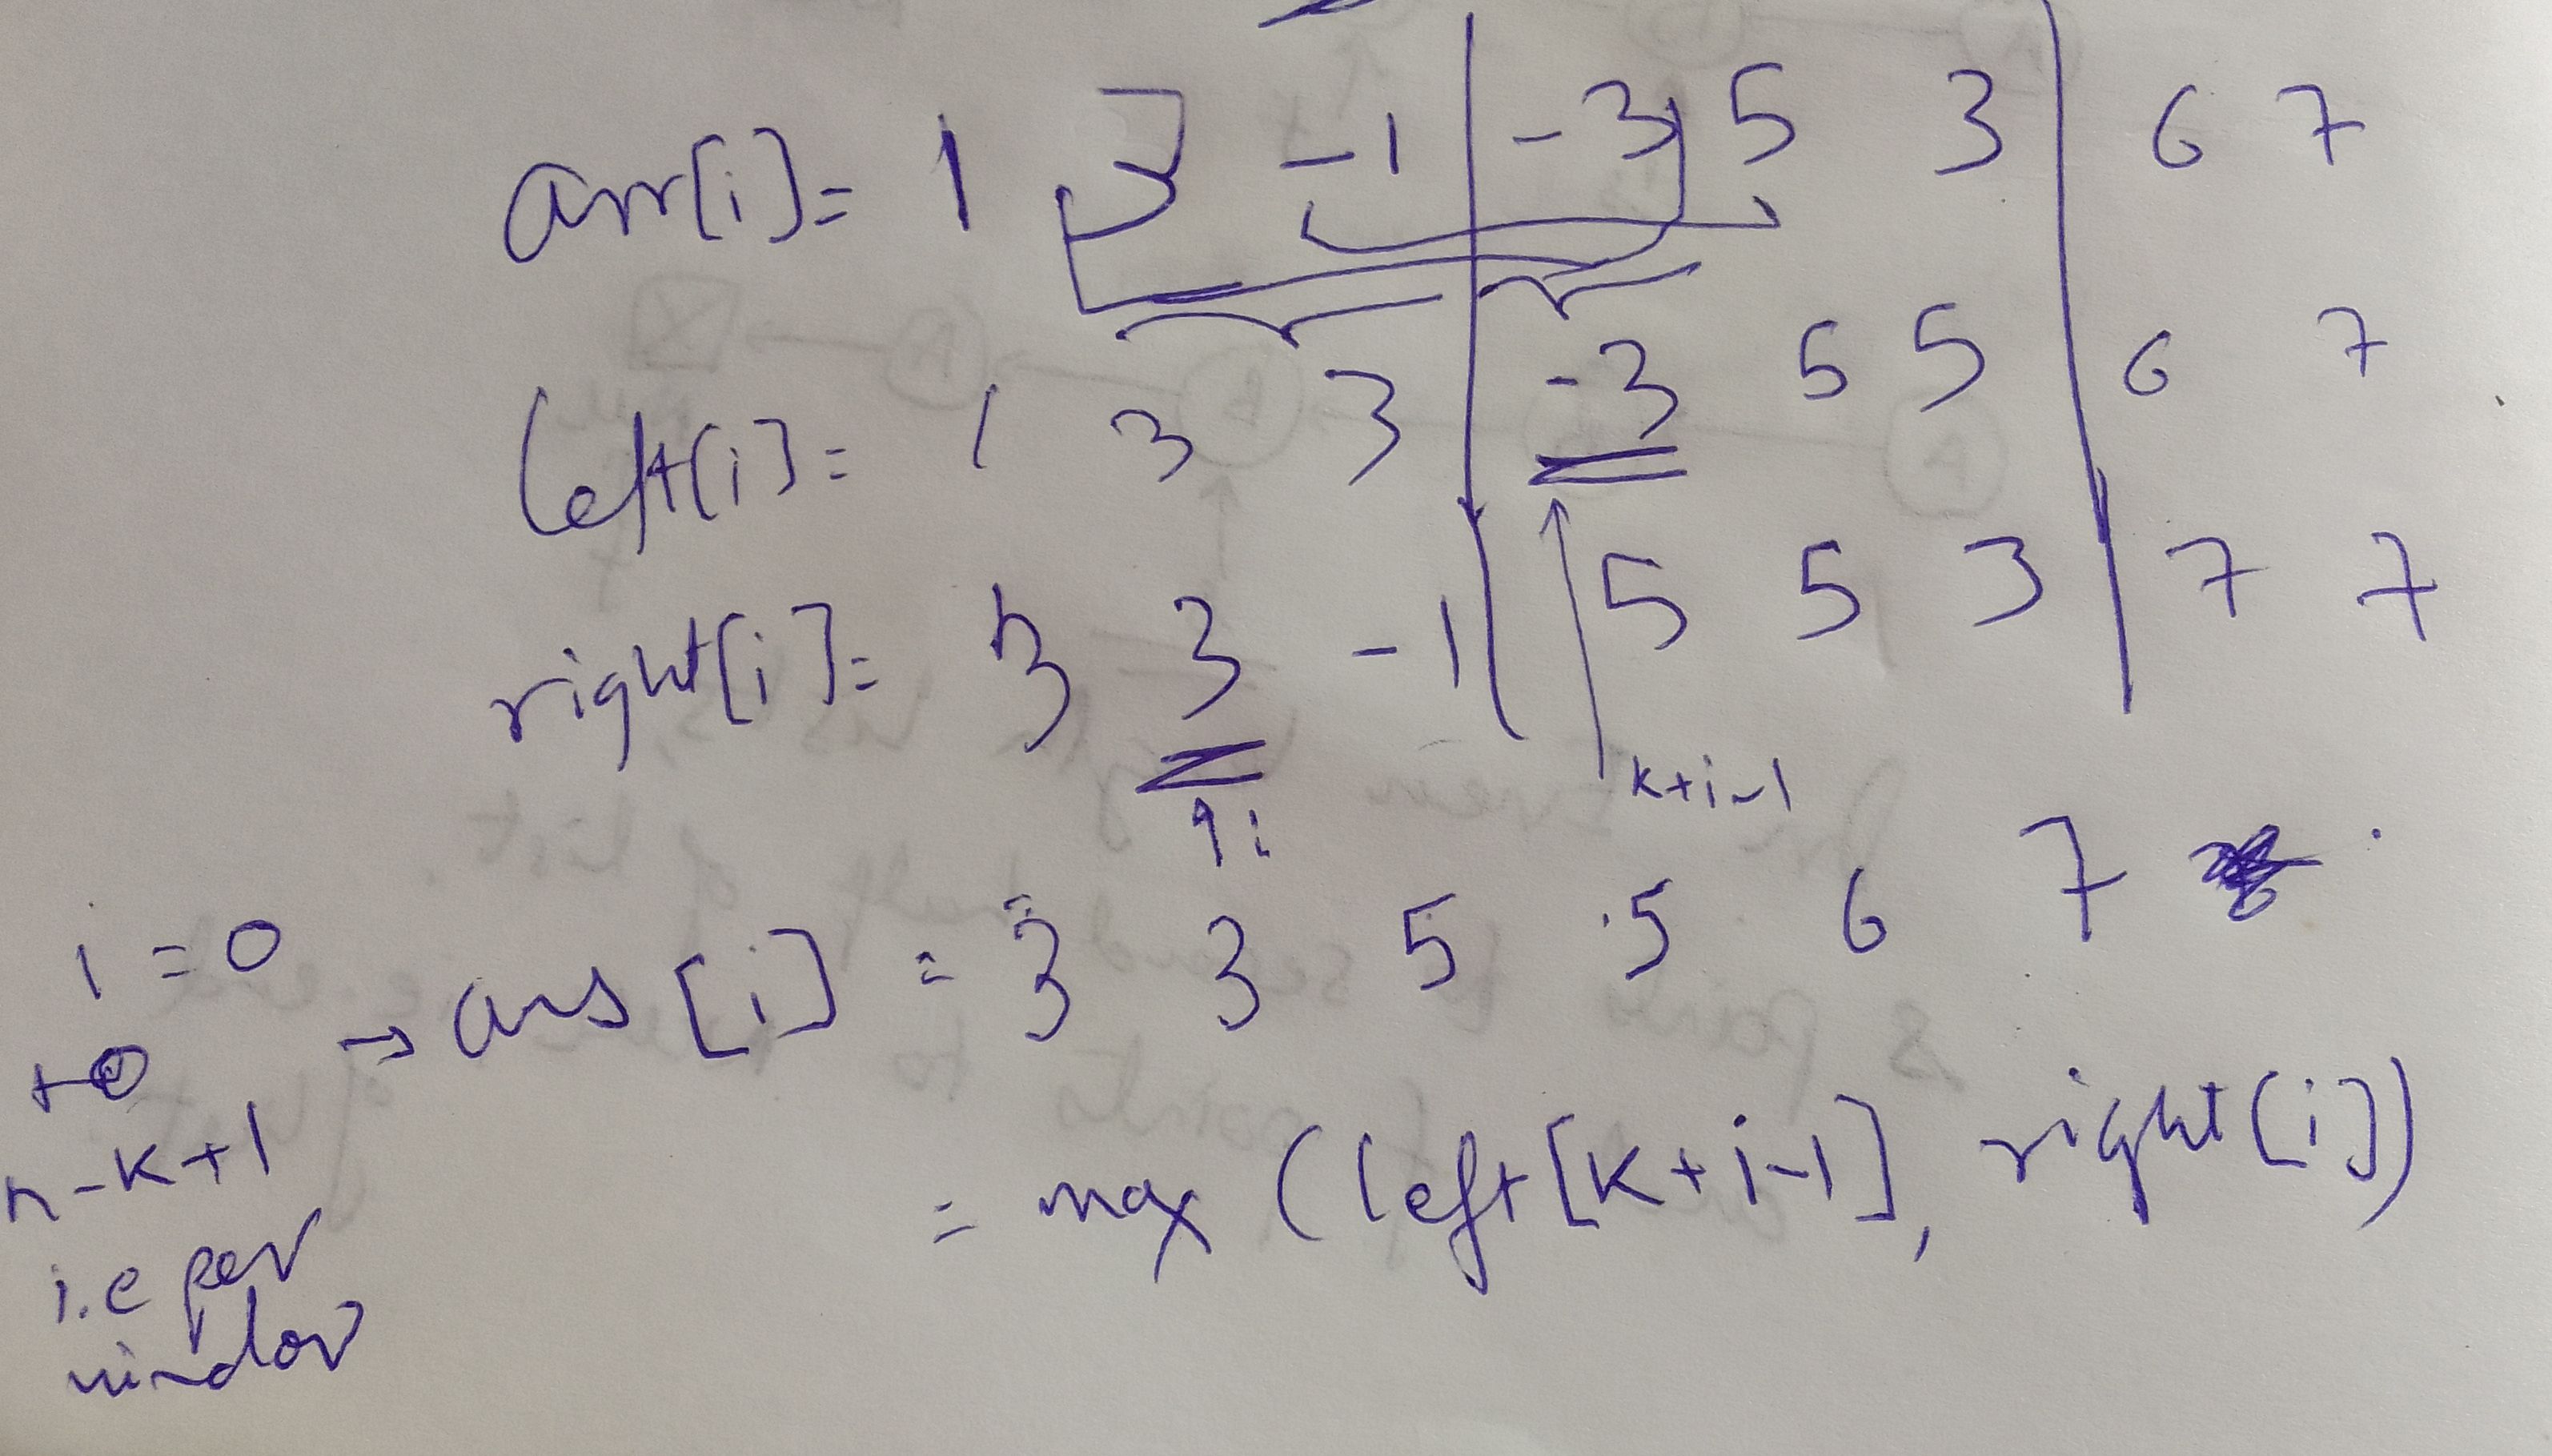 arr[i]= 1 3 -1 | -3 5 3 | 6 7
left[i]= 1 3 3 | -3 5 5 | 6 7
right[i]= 3 3 -1 | 5 5 3 | 7 7
i
k+i-1
i=0
to
n-k+1
i.e per
window
→ ans[i] = 3 3 5 5 6 7
= max (left[k+i-1], right[i])